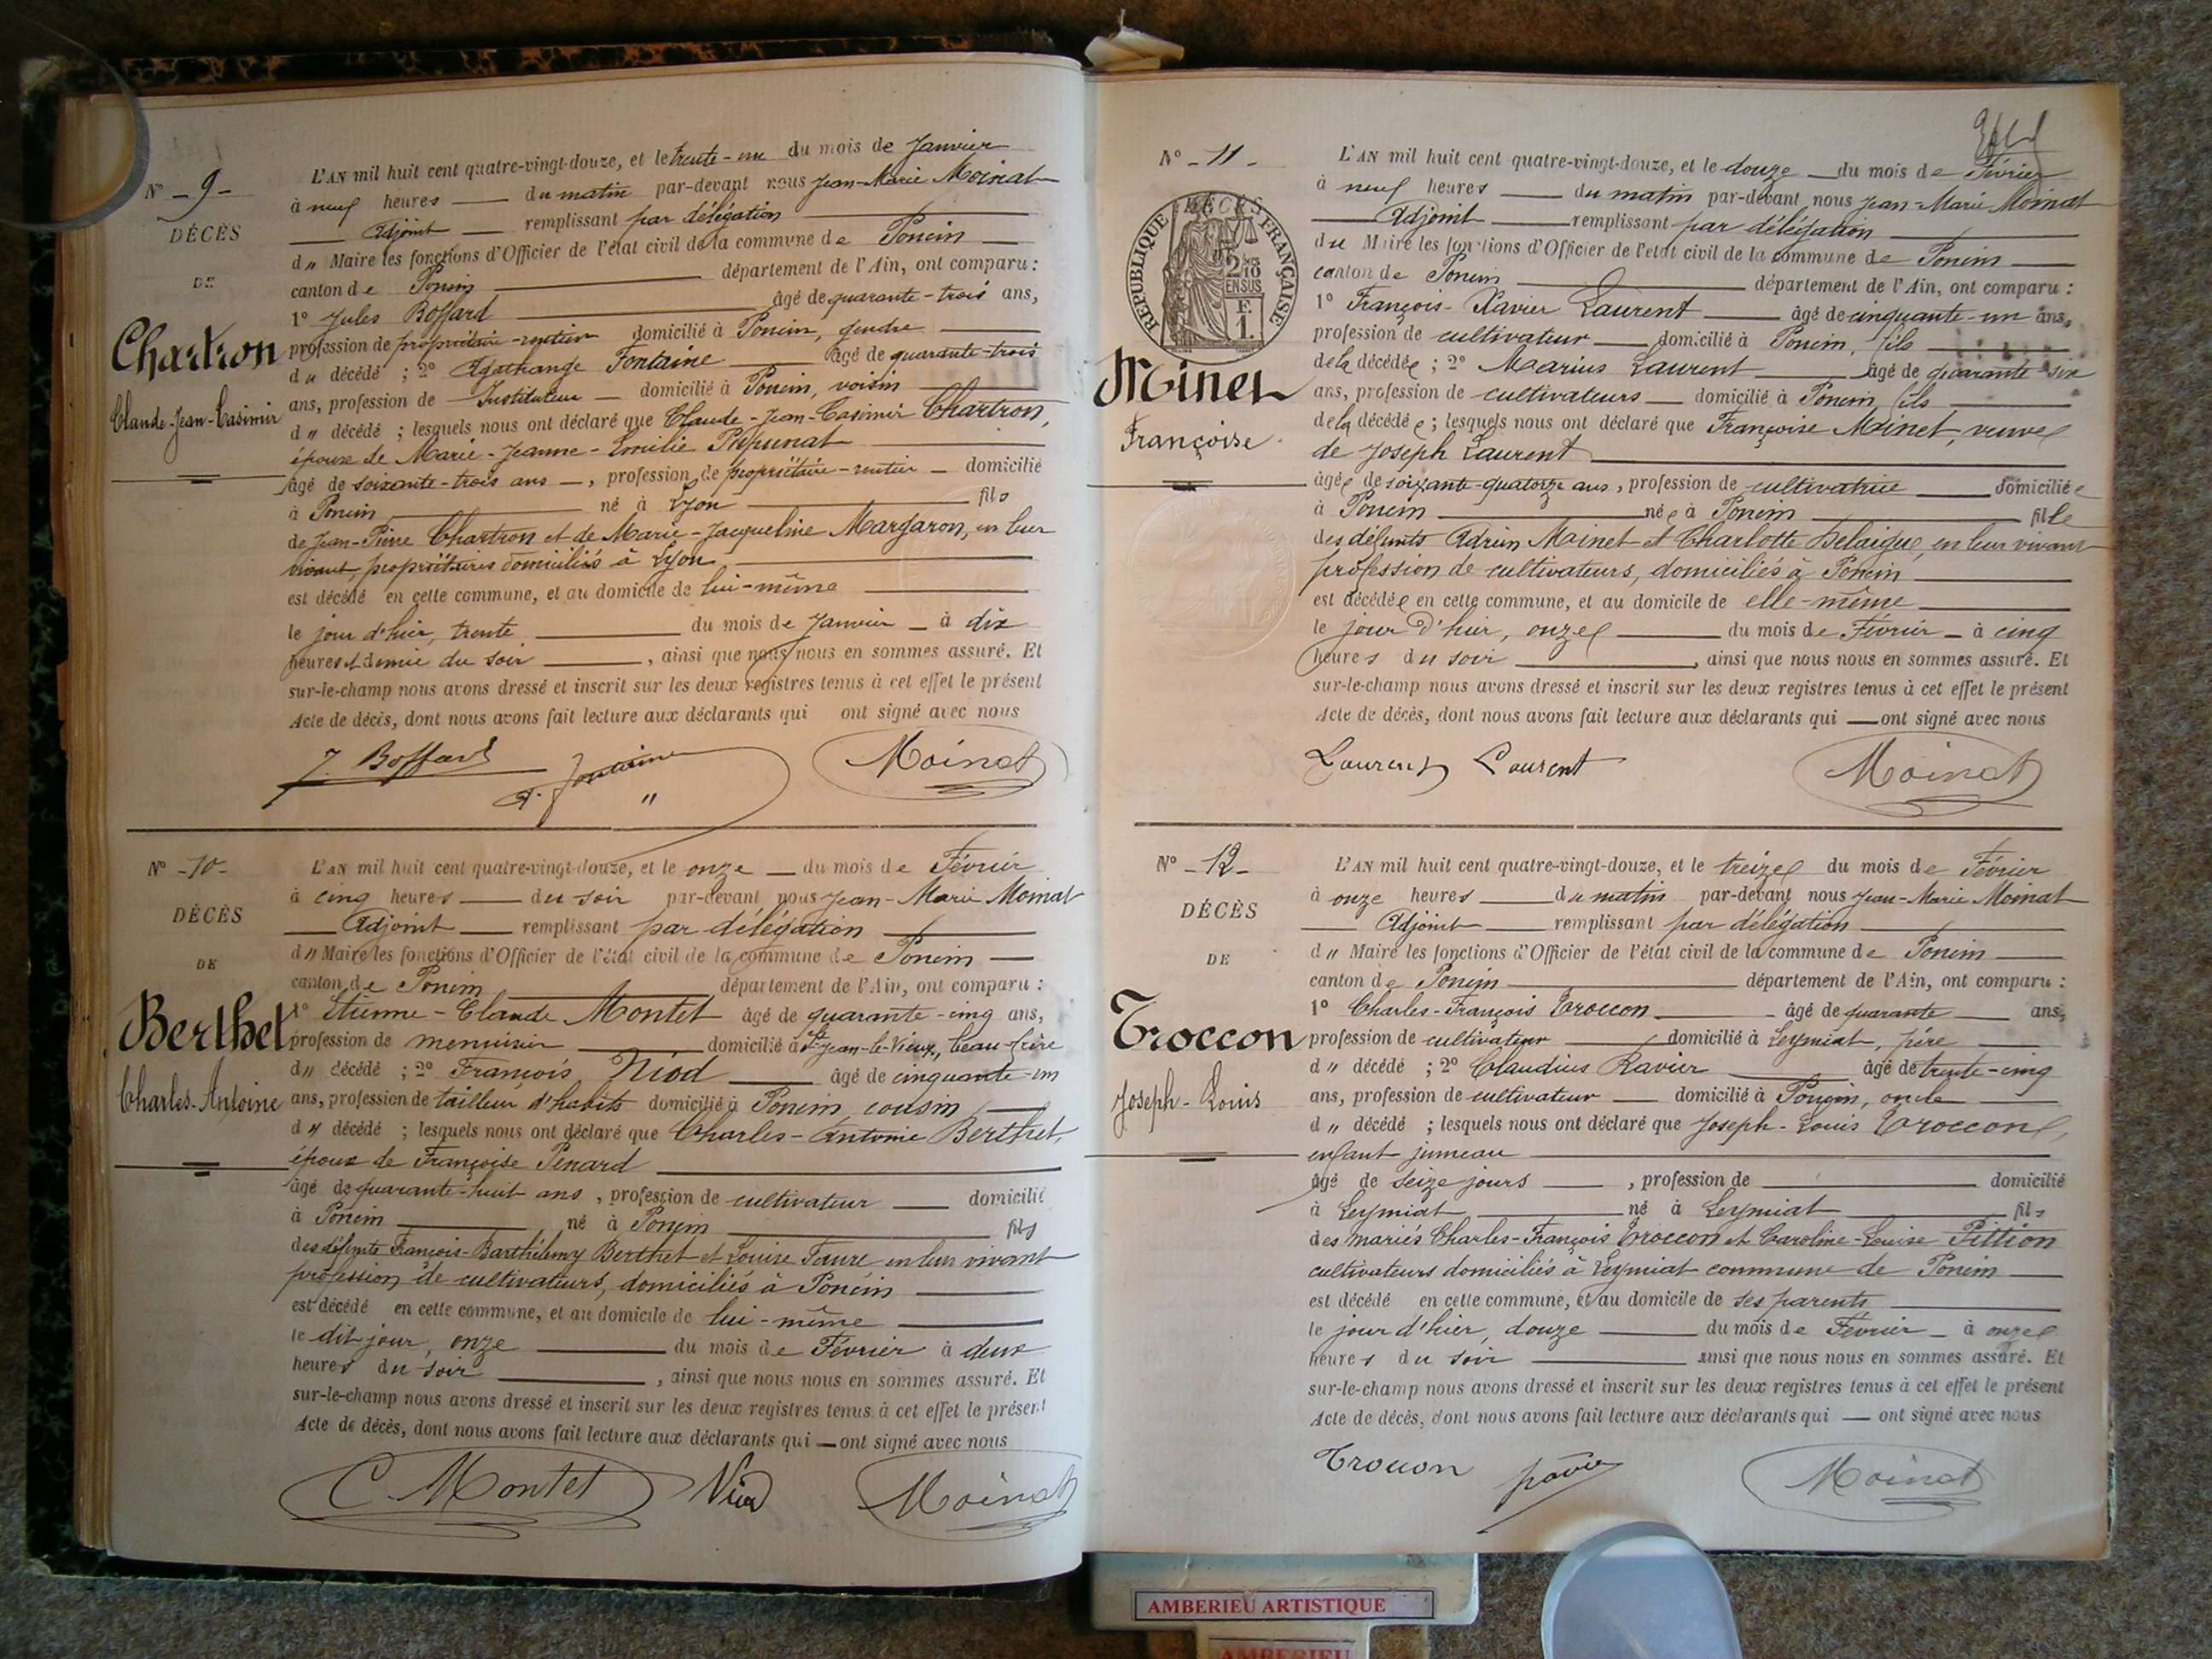 N° - 9 -
DÉCÈS
DE
Chartron
Claude-Jean-Casimir
L'AN mil huit cent quatre-vingt-douze, et le trente-un du mois de Janvier
à neuf heures du matin par-devant nous Jean-Marie Moinat
Adjoint remplissant par délégation
d" Maire les fonctions d'Officier de l'état civil de la commune de Poncin
canton de Poncin département de l'Ain, ont comparu :
1° Jules Boffard âgé de quarante-trois ans,
profession de propriétaire-rentier domicilié à Poncin, gendre
du décédé ; 2° Agathange Fontaine âgé de quarante-trois
ans, profession de Instituteur domicilié à Poncin, voisin
d" décédé ; lesquels nous ont déclaré que Claude-Jean-Casimir Chartron,
époux de Marie-Jeanne-Emilie
âgé de soixante-trois ans, profession de propriétaire-rentier domicilié
à Poncin né à Lyon fils
de Jean-Pierre Chartron et de Marie-Jacqueline Margaron, en leur
vivant, propriétaires domiciliés à Lyon
est décédé en cette commune, et au domicile de lui-même
le jour d'hier, trente du mois de Janvier à dix
heures et demie du soir, ainsi que nous nous en sommes assuré. Et
sur-le-champ nous avons dressé et inscrit sur les deux registres tenus à cet effet le présent
Acte de décès, dont nous avons fait lecture aux déclarants qui ont signé avec nous
J. Boffard A. Fontaine Moinat
N° - 10 -
DÉCÈS
DE
Berthet
Charles-Antoine
L'AN mil huit cent quatre-vingt-douze, et le onze du mois de Février
à cinq heures du soir par-devant nous Jean-Marie Moinat
Adjoint remplissant par délégation
d" Maire les fonctions d'Officier de l'état civil de la commune de Poncin
canton de Poncin département de l'Ain, ont comparu :
1° Etienne-Claude Montet âgé de quarante-cinq ans,
profession de menuisier domicilié à St Jean-le-Vieux, beau-frère
d" décédé ; 2° François Niod âgé de cinquante-un
ans, profession de tailleur d'habits domicilié à Poncin, cousin
d" décédé ; lesquels nous ont déclaré que Charles-Antoine Berthet,
époux de Françoise Pénard
âgé de quarante-huit ans, profession de cultivateur domicilié
à Poncin né à Poncin fils
des défunts François-Barthélemy Berthet et Louise Faure en leur vivant
profession de cultivateurs, domiciliés à Poncin
est décédé en cette commune, et au domicile de lui-même
le dit jour, onze du mois de Février à deux
heures du soir, ainsi que nous nous en sommes assuré. Et
sur-le-champ nous avons dressé et inscrit sur les deux registres tenus à cet effet le présent
Acte de décès, dont nous avons fait lecture aux déclarants qui ont signé avec nous
C. Montet Niod Moinat
N° - 11 -
RÉPUBLIQUE FRANÇAISE
DÉCÈS
2 10
EN SUS
F.
1.
Minet
Françoise
L'AN mil huit cent quatre-vingt-douze, et le douze du mois de Février
à neuf heures du matin par-devant nous Jean-Marie Moinat
Adjoint remplissant par délégation
du Maire les fonctions d'Officier de l'état civil de la commune de Poncin
canton de Poncin département de l'Ain, ont comparu :
1° François-Xavier Laurent âgé de cinquante-un ans,
profession de cultivateur domicilié à Poncin, fils
de la décédée ; 2° Marius Laurent âgé de quarante-six
ans, profession de cultivateurs domicilié à Poncin, fils
de la décédée ; lesquels nous ont déclaré que Françoise Minet, veuve
de Joseph Laurent
âgée de soixante-quatorze ans, profession de cultivatrice domiciliée
à Poncin née à Poncin fille
des défunts Adrien Mainet et Charlotte Delaigue, en leur vivant
profession de cultivateurs, domiciliés à Poncin
est décédée en cette commune, et au domicile de elle-même
le jour d'hier, onze du mois de Février à cinq
heures du soir, ainsi que nous nous en sommes assuré. Et
sur-le-champ nous avons dressé et inscrit sur les deux registres tenus à cet effet le présent
Acte de décès, dont nous avons fait lecture aux déclarants qui ont signé avec nous
Laurent Laurent Moinat
N° - 12 -
DÉCÈS
DE
Troccon
Joseph-Louis
L'AN mil huit cent quatre-vingt-douze, et le treize du mois de Février
à onze heures du matin par-devant nous Jean-Marie Moinat
Adjoint remplissant par délégation
d" Maire les fonctions d'Officier de l'état civil de la commune de Poncin
canton de Poncin département de l'Ain, ont comparu :
1° Charles-François Troccon âgé de quarante ans,
profession de cultivateur domicilié à Leymiat, père
d" décédé ; 2° Claudius Ravier âgé de trente-cinq
ans, profession de cultivateur domicilié à Poncin, oncle
d" décédé ; lesquels nous ont déclaré que Joseph-Louis Troccon,
enfant jumeau
âgé de seize jours, profession de domicilié
à Leymiat né à Leymiat fils
des mariés Charles-François Troccon et Caroline-Louise Pittion
cultivateurs domiciliés à Leymiat commune de Poncin
est décédé en cette commune, et au domicile de ses parents
le jour d'hier, douze du mois de Février à onze
heures du soir ainsi que nous nous en sommes assuré. Et
sur-le-champ nous avons dressé et inscrit sur les deux registres tenus à cet effet le présent
Acte de décès, dont nous avons fait lecture aux déclarants qui ont signé avec nous
Trocon Moinat
AMBERIEU ARTISTIQUE
AMBERIEU